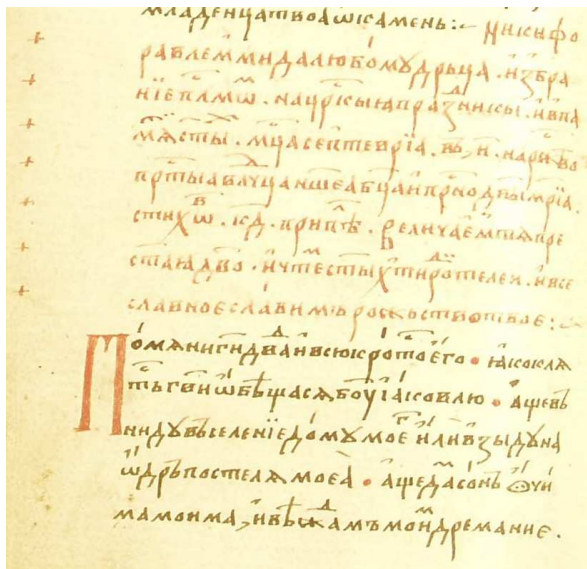 младенца твоа ѡ камень :~ Никифо
ра влеммида любомудрьца . избра
нїе п҃лмѡⷨ . на црⷭ҇кыѧ праⷥ҇никы . и в па
мѧ̑ сты҃ . мⷭ҇ца септеврїа . въ , и҃ . на рⷤ҇ии во
прⷭ҇тыа влⷣ҇ца нашеа бц҃а и прⷭ҇нодв҃ы мр҃їа
стихѡⷡ . к҃д . припѣⷧ . Величаеⷨ тѧ пре
стаѧ дв҃о . и чтеⷨ сты҃х ти роⷣтелей . и все
славное славимъ рожьство твое :~
Помѧни г҃и дв҃да и всю кротоⷭ҇ его • ꙗко клѧ
тъ гв҃и ѡбѣща сѧ бо҃у їаковлю • аще въ
ниду въ селенїе дому моеⷢ . или взыду на
ѡдръ постелѧ моеа • аще даⷨ сонъ ꙭчи
мамоима , и вѣждамъ моиⷨ дремание .